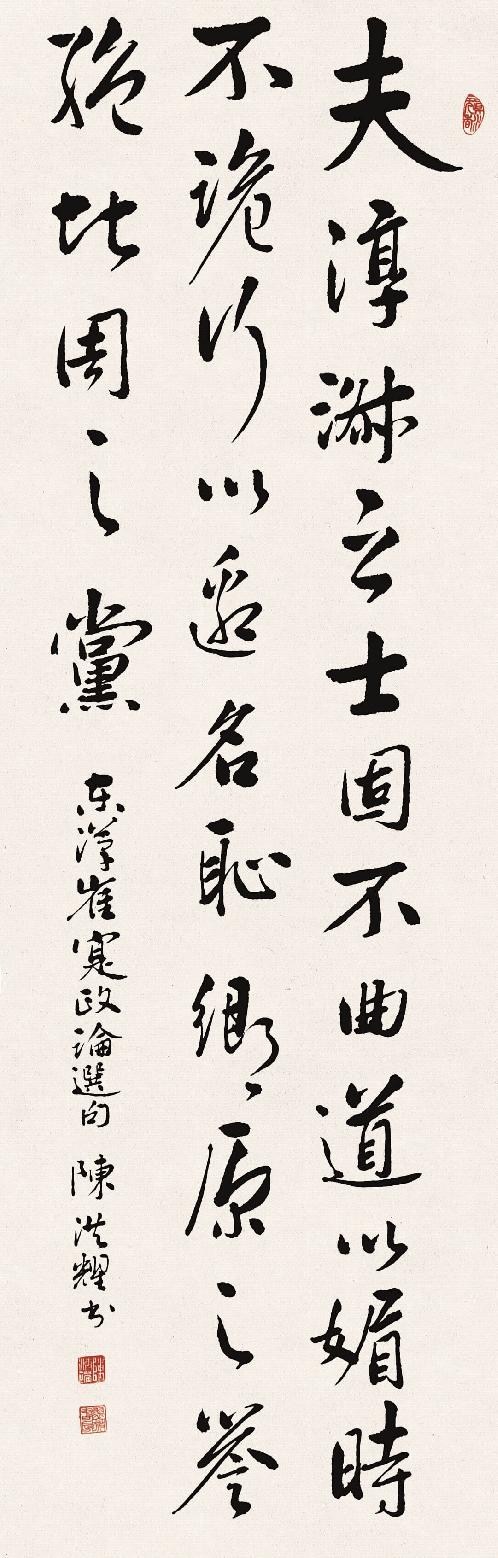 夫淳淑之士固不曲道以媚時
不詭行以邀名恥鄉原之譽
絕比周之黨
東漢崔寔政論選句 陳洪耀书